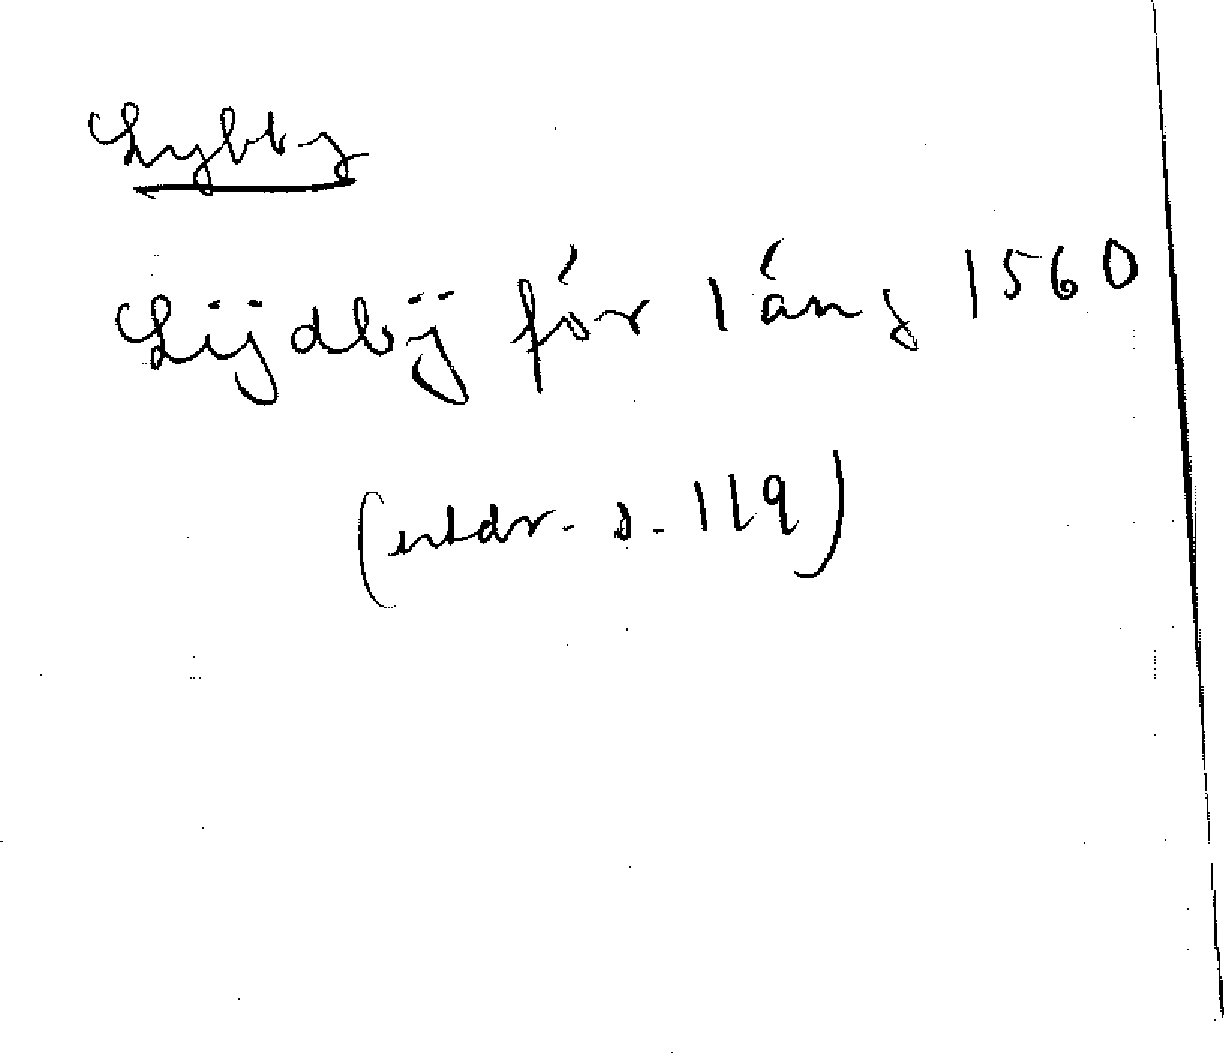 Lybby
Lijdbÿ för 1 ång 1560
(utdr. s. 119)